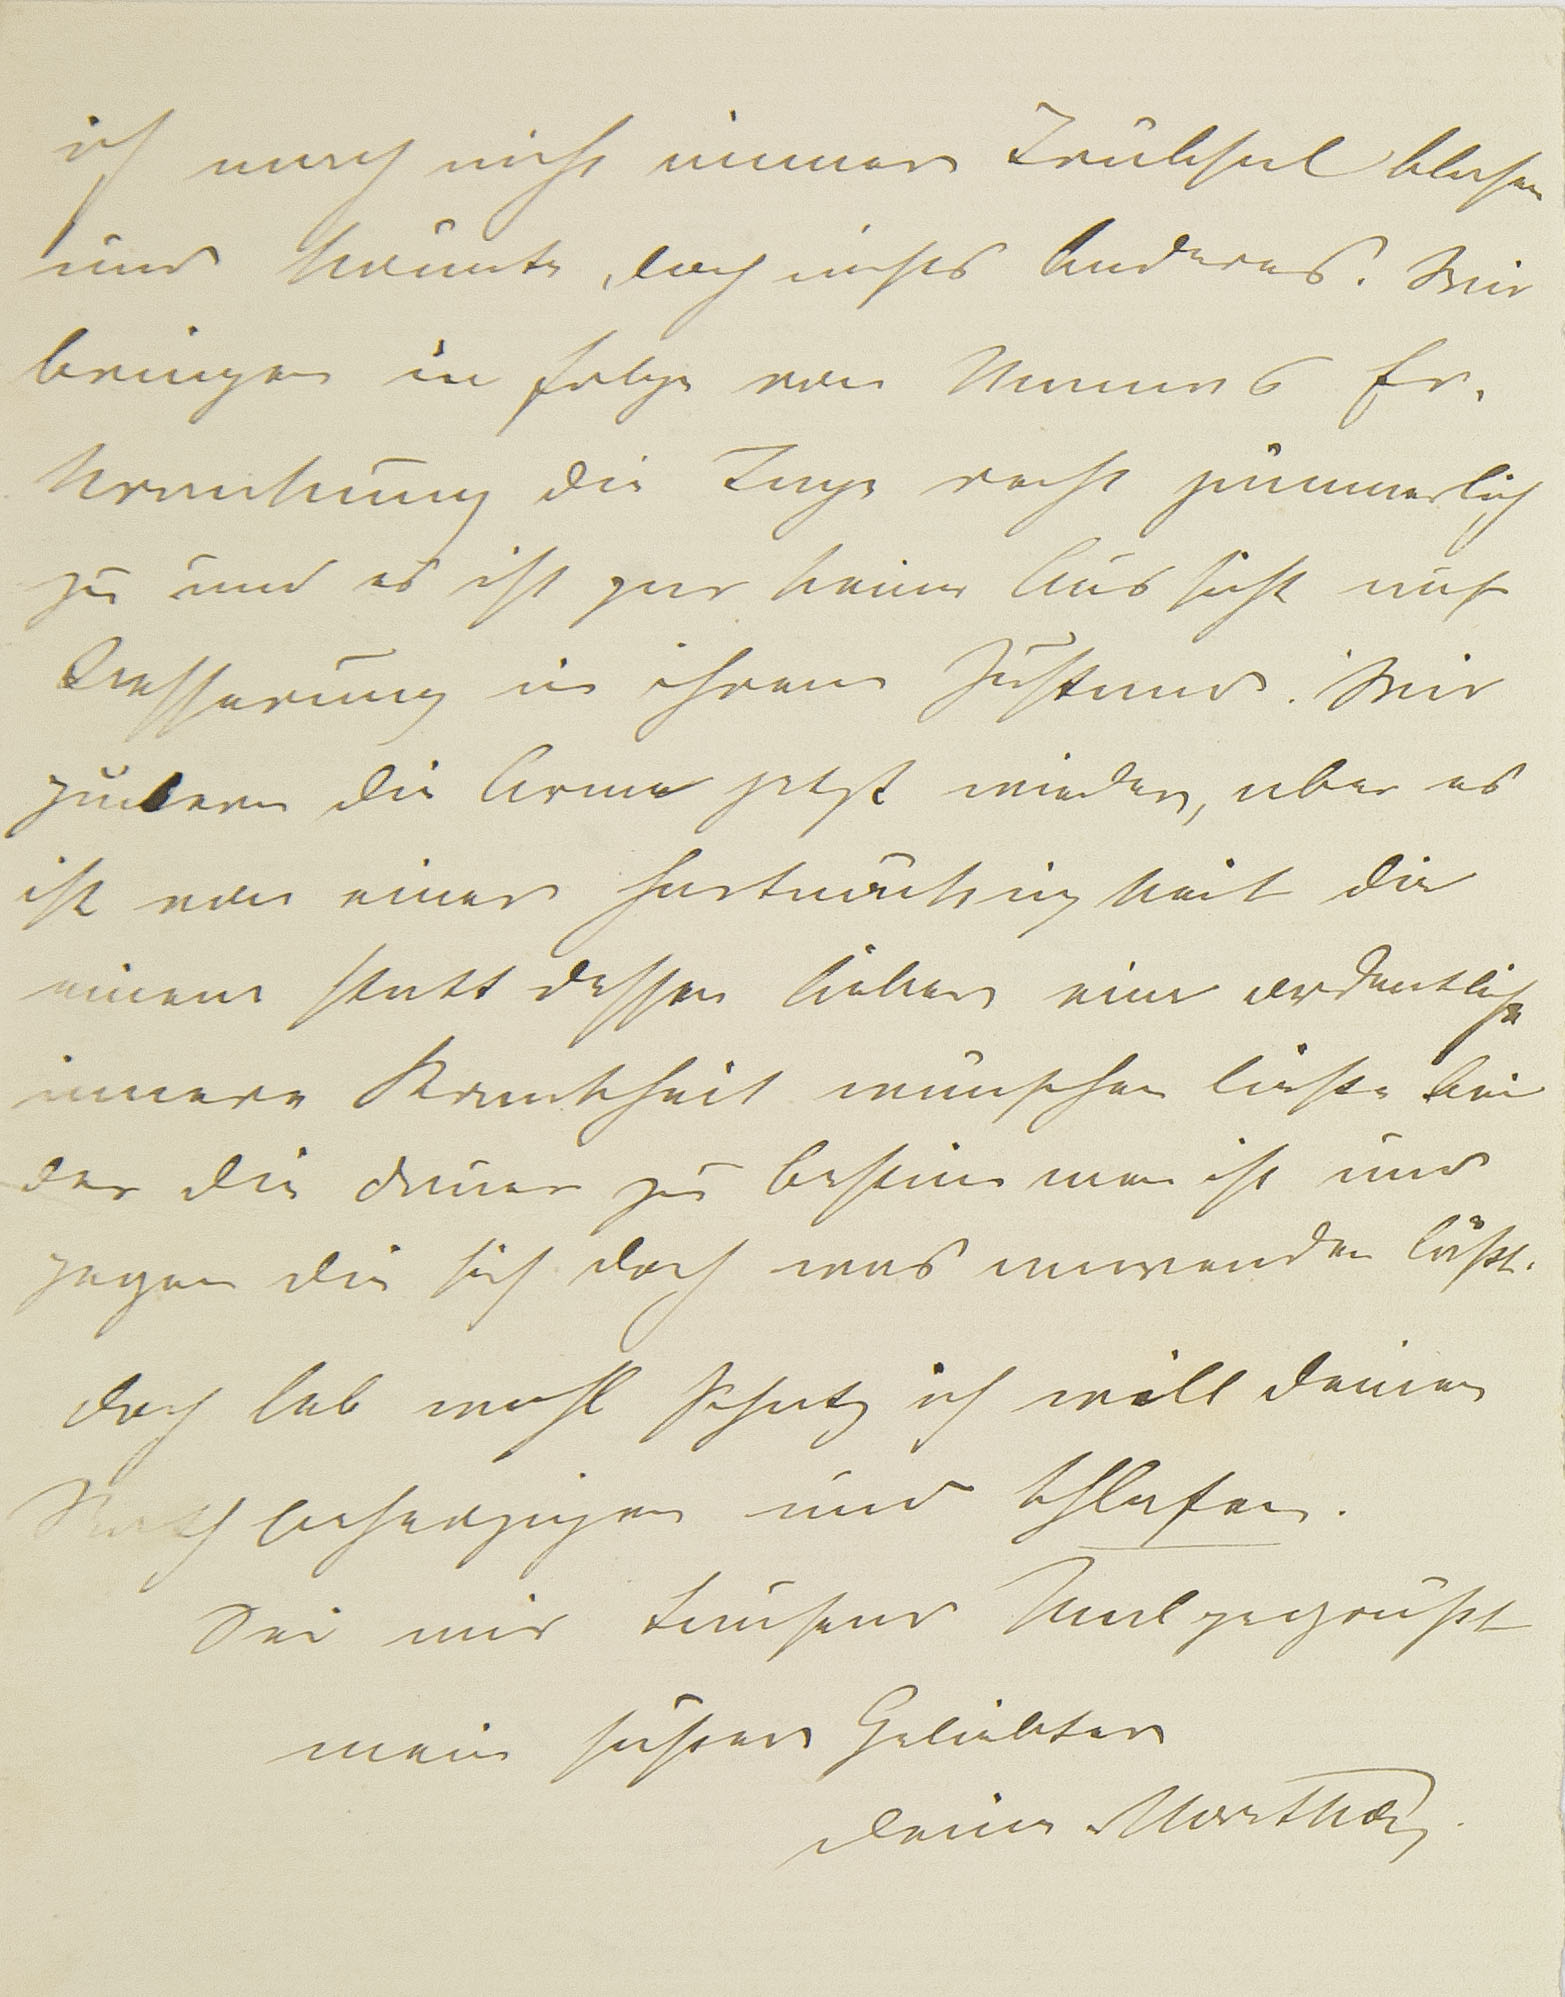 ich mag nicht immer Trübsal blasen
und könnte doch nichts Anderes. Wir
bringen in folge von Mamas Er-
krankung die Tage recht jämmerlich
zu und es ist gar keine Aussicht auf
Besserung in ihrem Zustand. Wir
die Arme jetzt wieder, aber es
ist von einer Hartnäckigkeit die
einem statt dessen lieber eine ordentliche
innere Krankheit wünschen ließe bei
der die Dauer zu bestimmen ist und
gegen die sich doch was anwenden läßt.
Doch leb wohl Schatz ich will deinen
Rath beherzigen und schlafen.
Sei mir tausend Mal gegrüßt
mein süßer Geliebter
deine Martha.